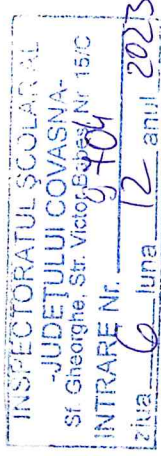 INSPECTORATUL ŞCOLAR AL
-JUDEŢULUI COVASNA-
Sf. Gheorghe, Str. Victor Babeş Nr. 15/C
INTRARE Nr. 9704
ziua 6 luna 12 anul 2023